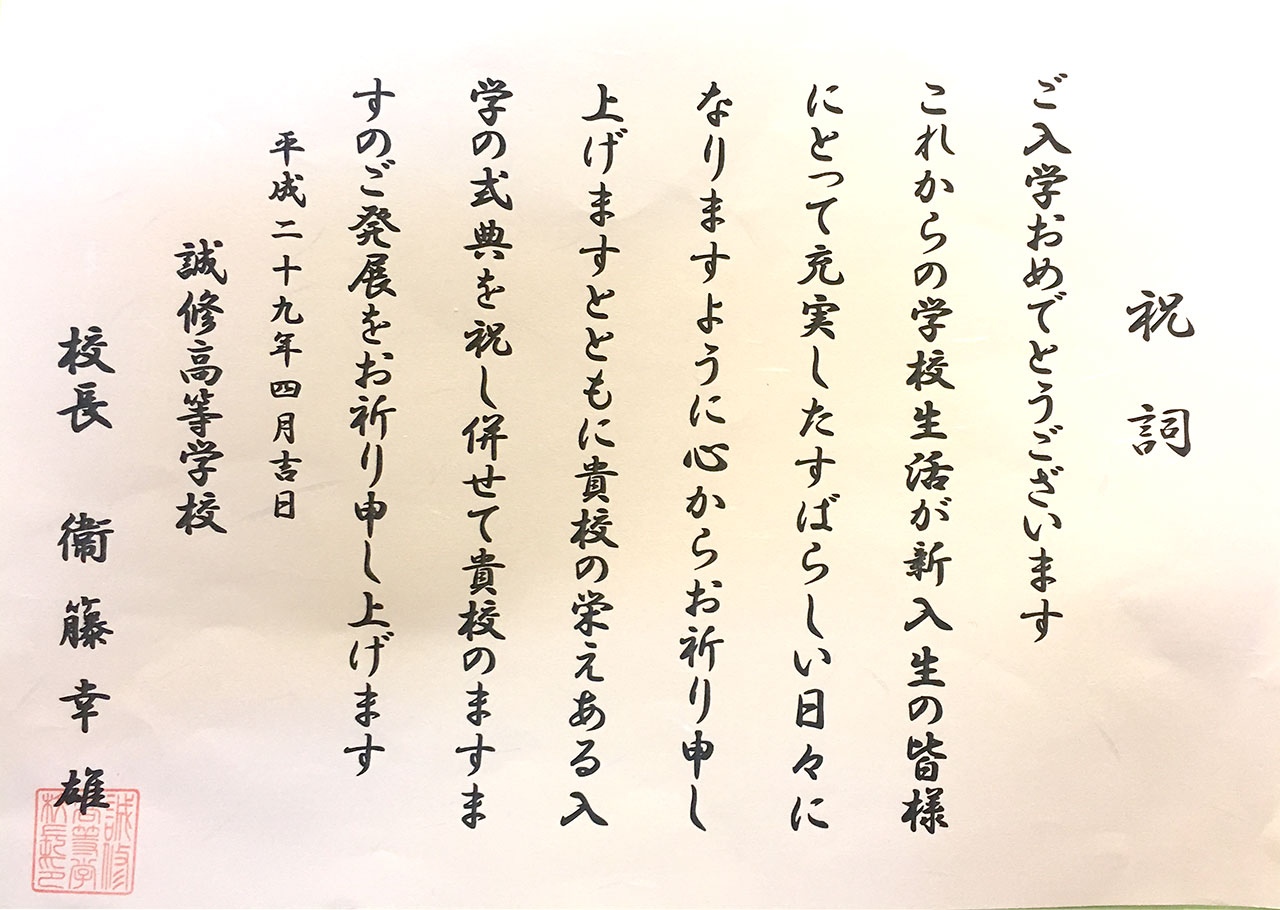 祝詞
ご入学おめでとうございます
これからの学校生活が新入生の皆様
にとって充実したすばらしい日々に
なりますように心からお祈り申し
上げますとともに貴校の栄えある入
学の式典を祝し併せて貴校のますま
すのご発展をお祈り申し上げます
平成二十九年四月吉日
誠修高等学校
校長 衞藤幸雄
誠修高等学校長印